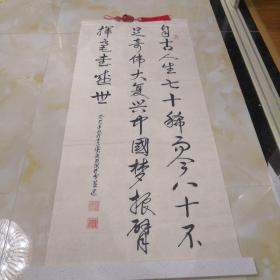 自古人生七十稀而今八十不
足奇伟大复兴中國梦振臂
挥毫书盛世